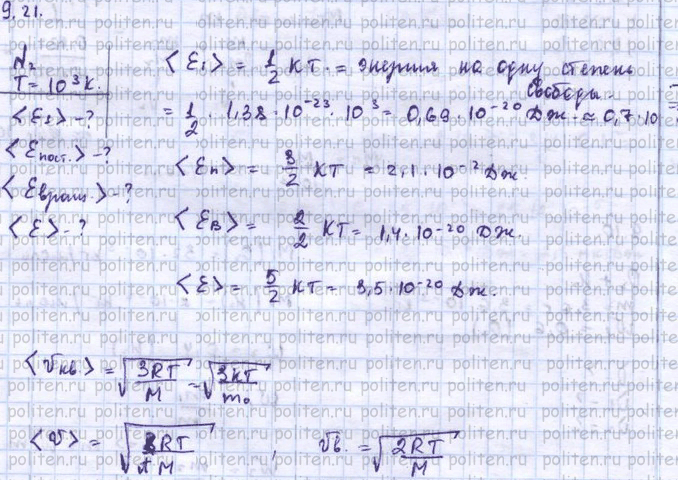 9.21.
N₂
T = 10³ К.
<ε₁> - ?
<εпост.> - ?
<εвращ.> - ?
<ε> - ?
<ε₁> = 1/2 кТ. = энергия на одну степень
свободы.
= 1/2 · 1,38 · 10⁻²³ · 10³ = 0,69 · 10⁻²⁰ Дж. ≈ 0,7 · 10
<εп> = 3/2 кТ = 2,1 · 10⁻² Дж.
<εв> = 2/2 кТ = 1,4 · 10⁻²⁰ Дж.
<ε> = 5/2 кТ = 3,5 · 10⁻²⁰ Дж.
<vкв.> = √(3RT/M) = √(3кТ/m₀)
<v> = √(8RT/πM) , vв. = √(2RT/M)
politen.ru